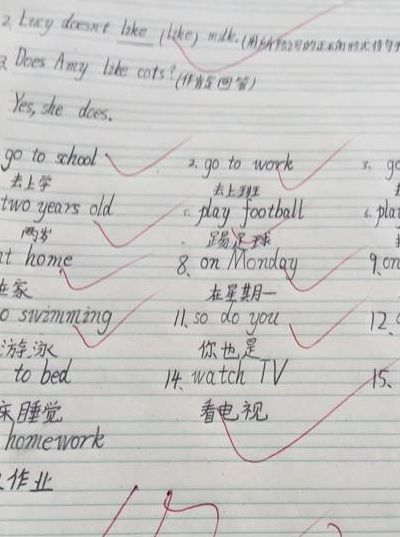 2. Lucy doesn't like (like) milk. (用所给词的正
3. Does Amy like cats? (作肯定回答)
Yes, she does.
go to school 2. go to work 3. go
去上学 去上班
two years old 5. play football 6. play
两岁 踢足球
at home 8. on Monday 9. on
在家 在星期一
o swimming 11. so do you 12.
游泳 你也是
to bed 14. watch TV 15.
床睡觉 看电视
homework
作业